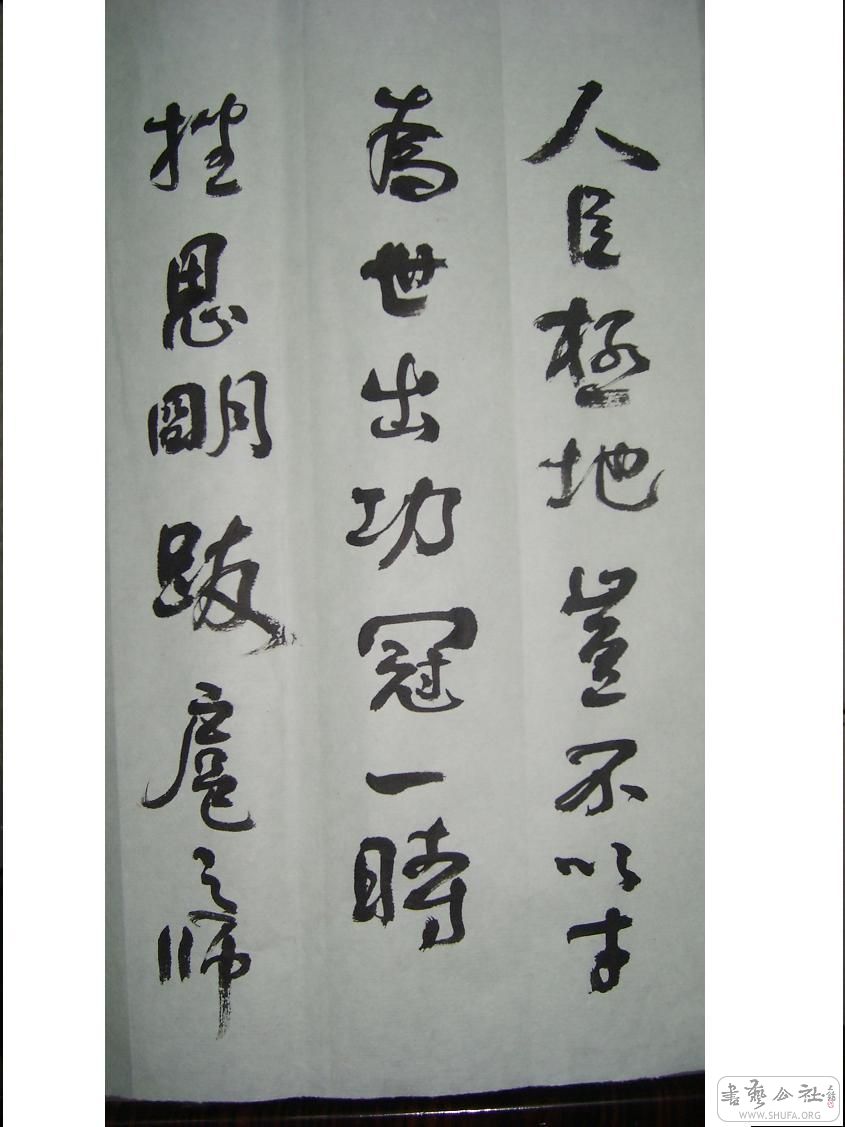 人臣極地豈不以才
為世出功冠一時
挫思明跋扈之師
書藝公社
WWW.SHUFA.ORG